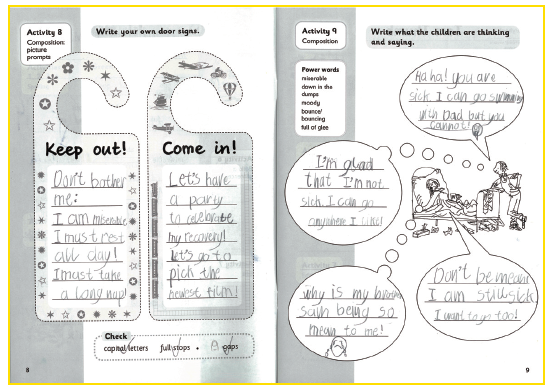 Activity 8
Composition:
picture
prompts
Write your own door signs.
Keep out!
Don't bother
me!
I am miserable
I must rest
all day!
I must take
a long nap!
Come in!
Let's have
a party
to celebrate
my recovery!
let's go to
pick the
newest film!
Check
capital letters full stops gaps
8
Activity 9
Composition
Write what the children are thinking
and saying.
Power words
miserable
down in the
dumps
moody
bounce/
bouncing
full of glee
Ha ha! you are
sick. I can go swimming
with Dad but you
cannot!
I'm glad
that I'm not
sick. I can go
anywhere I like!
why is my
being so
mean to me!
Don't be mean!
I am still sick
I want to go too!
9